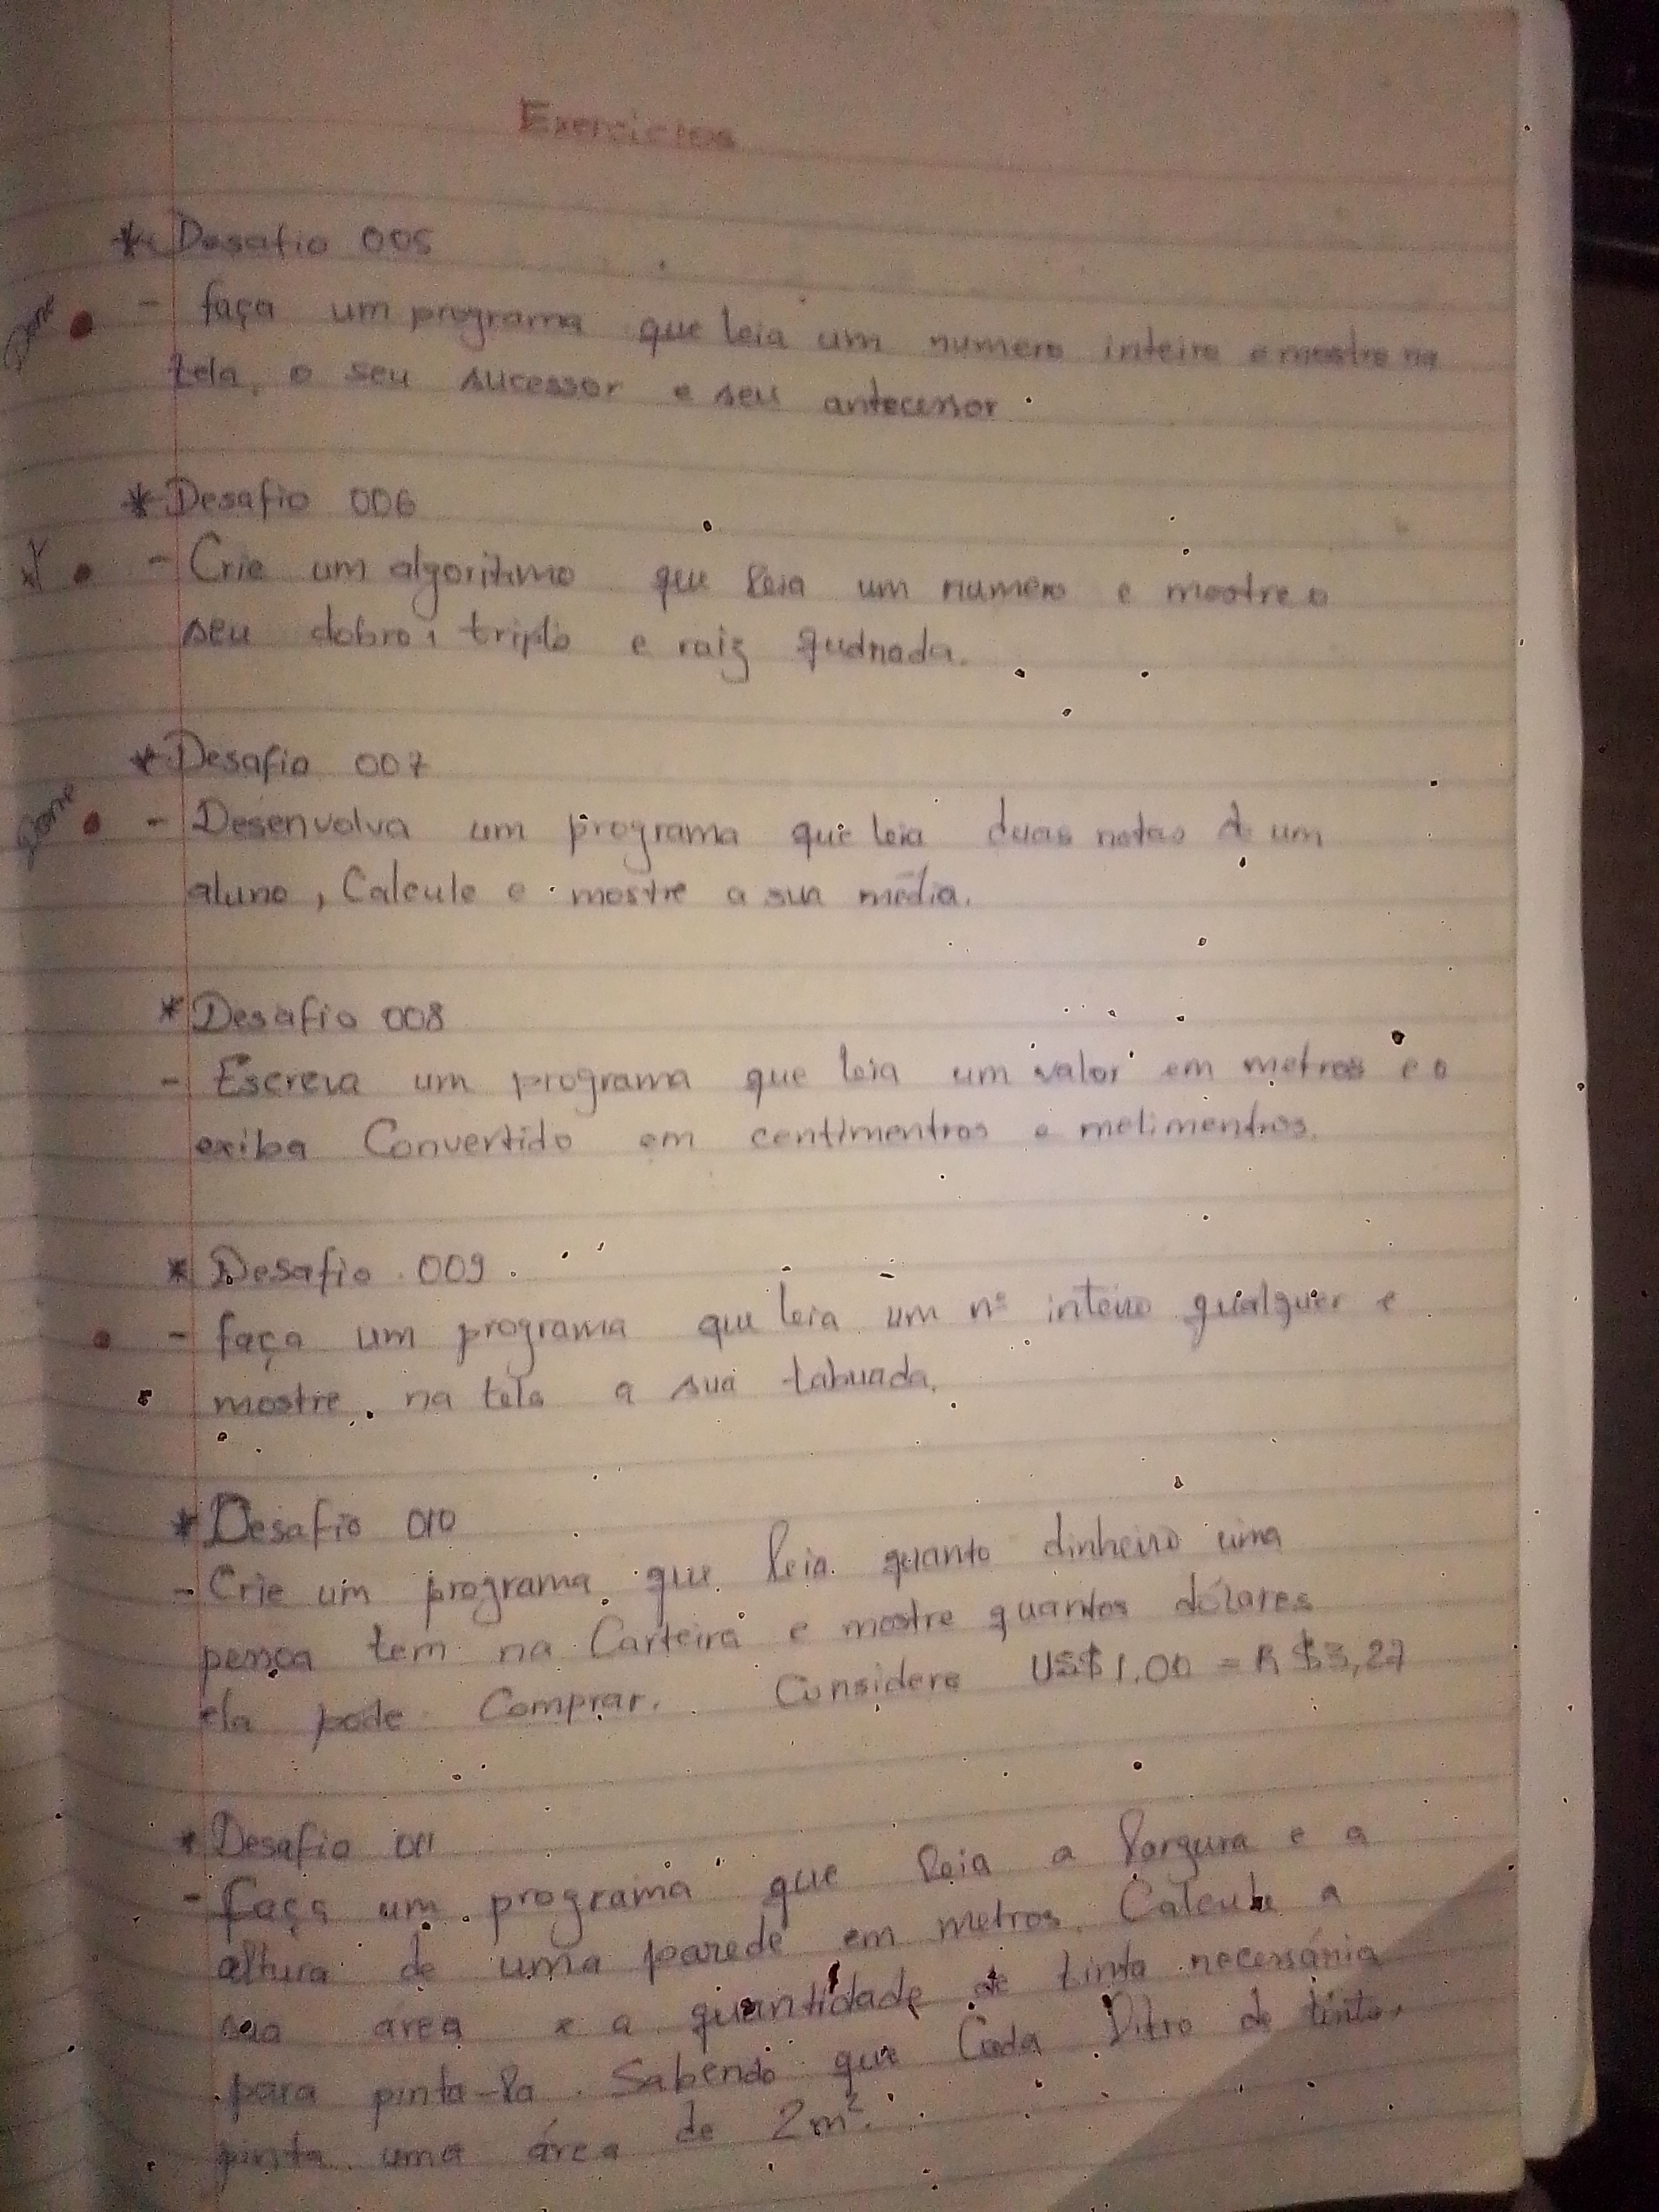 Exercicios
* Desafio 005
Done - faça um programa que leia um numero inteiro e mostre na
tela, o seu sucessor e seu antecessor.
* Desafio 006
- Crie um algoritimo que leia um numero e mostre o
seu dobro, triplo e raiz qudrada.
* Desafio 007
Done - Desenvolva um programa que leia duas notas de um
aluno, Calcule e mostre a sua média.
* Desafio 008
- Escreva um programa que leia um valor em metros e o
exiba Convertido em centimentros e melimentros.
* Desafio 009
- faça um programa que leia um nº inteiro qualquer e
mostre na tela a sua tabuada.
* Desafio 010
- Crie um programa que leia quanto dinheiro uma
pessoa tem na Carteira e mostre quantos dólares
ela pode Comprar. Considere US$ 1.00 = R$3,27
* Desafio 011
- Faça um programa que leia a largura e a
altura de uma parede em metros. Calcule a
sua área e a quantidade de tinta necessária
para pinta-la. Sabendo que Cada litro de tinta,
pinta uma área de 2m².